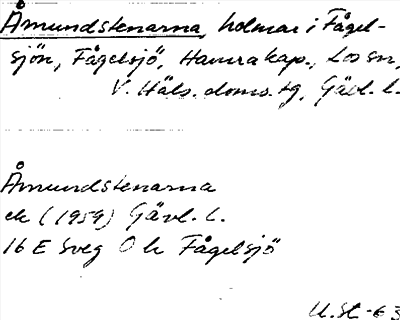 Åmundstenarna, holmar i Fågel-
sjön, Fågelsjö, Hamra kap., Los sn,
V. Häls. doms. tg, Gävl. l.
Åmundstenarna
ek (1959) Gävl. l.
16 E Sveg O h Fågelsjö
U.St. -63